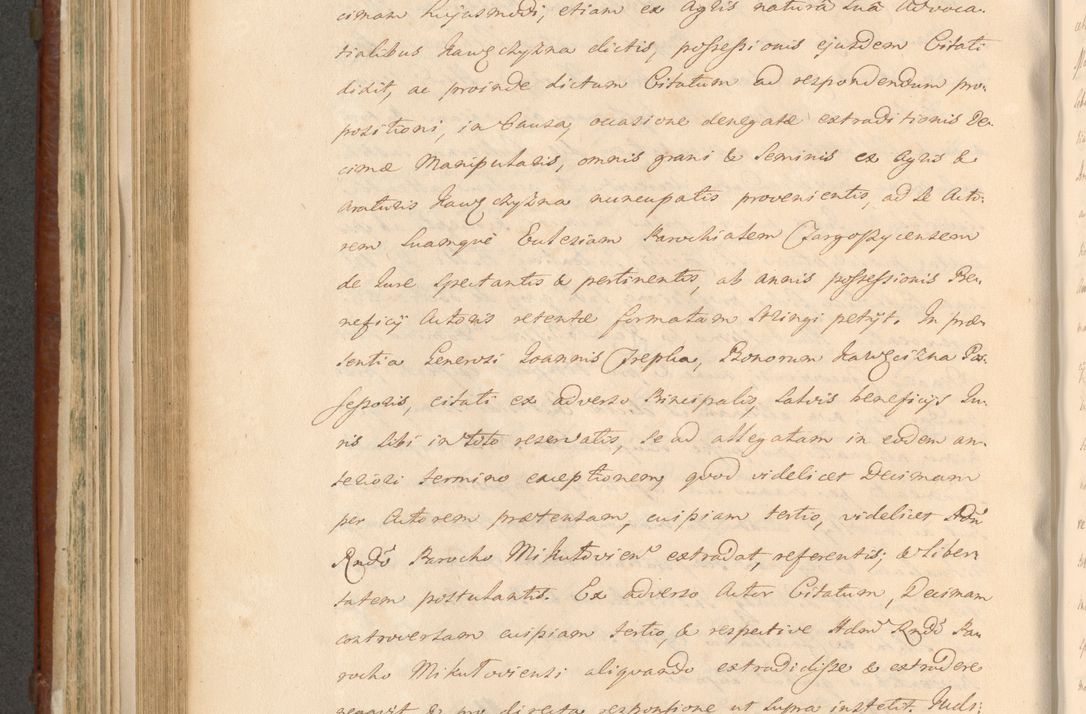 cimam hujusmodi, etiam ex Agris natura sua Advoca-
tialibus Kawęczyzna dictis, possessionis ejusdem Citati
didit, ac proinde dictum Citatum ad respondendum pro-
positioni, in Causa, occasione denegatæ extraditionis De-
cimæ Manipularis, omnis grani & Seminis ex Agris &
araturis Kawęczyzna nuncupatis provenientis, ad se Acto-
rem Suamque Eclesiam Parochialem Targoszycensem
de Jure Spectantis & pertinentis, ab annis possessionis Be-
neficij Actoris retentæ formatam Stringi petijt. In præ-
sentia Generosi Joannis Trepka, Bonorum Kawęcizna Pos-
sessoris, citati ex adverso Principalis, Salvis beneficijs Ju-
ris Sibi in toto reservatis, se ad allegatam in eodem an-
teriori termino exceptionem, quod videlicet Decimam
per Actorem prætensam, cuipiam tertio, videlicet Adm
Rndo Parocho Mikułovien extradat, referentis; & liber
tatem postulantis. Ex adverso Actor Citatum, Decimam
controversam cuipiam tertio, & respective Adm Rndo Pa-
rocho Mikułoviensi aliquando extradidisse & extradere
negavit & pro directa responsione ut Supra institit. Judi-